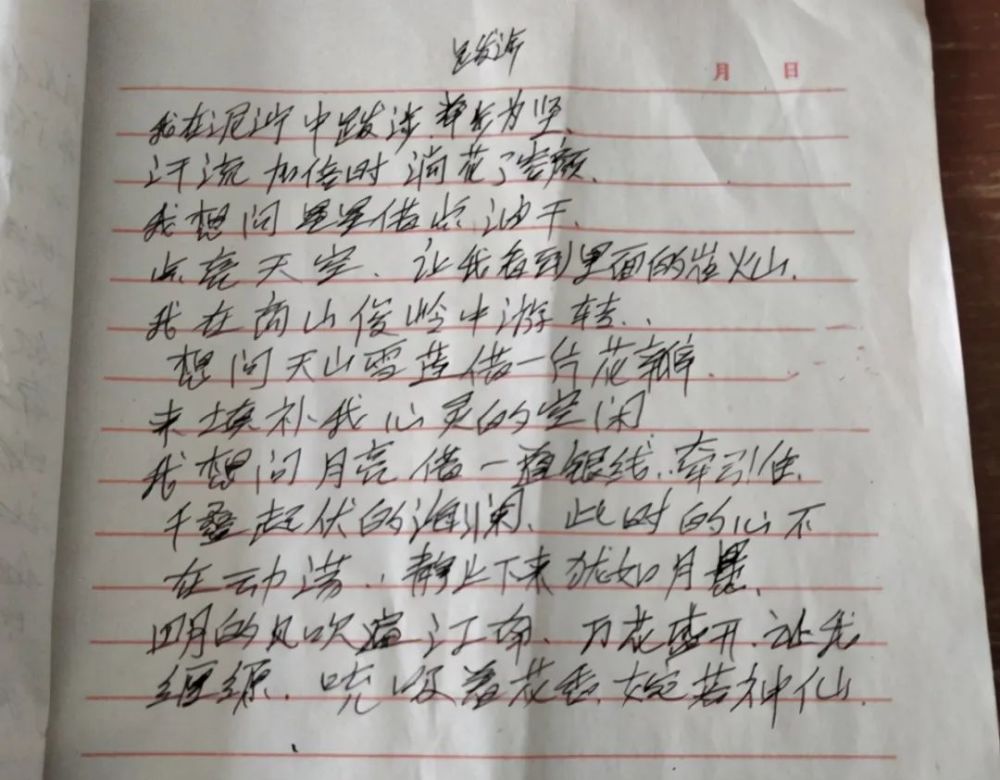 跋涉
月 日
我在泥泞中跋涉,举步为坚、
汗流加倍时淌花了容颜、
我想问星星借点油干、
点亮天空、让我看到里面的岩火山、
我在高山俊岭中游转、、
想问天山雪莲借一片花瓣、
来填补我心灵的空闲
我想问月亮借一根银线、牵引住、
千叠起伏的海澜、此时的心不
在动荡、、静止下来犹如月悬、
四月的风吹遍江南、万花盛开、让我
缠绵、吮吸着花香、婉若神仙、